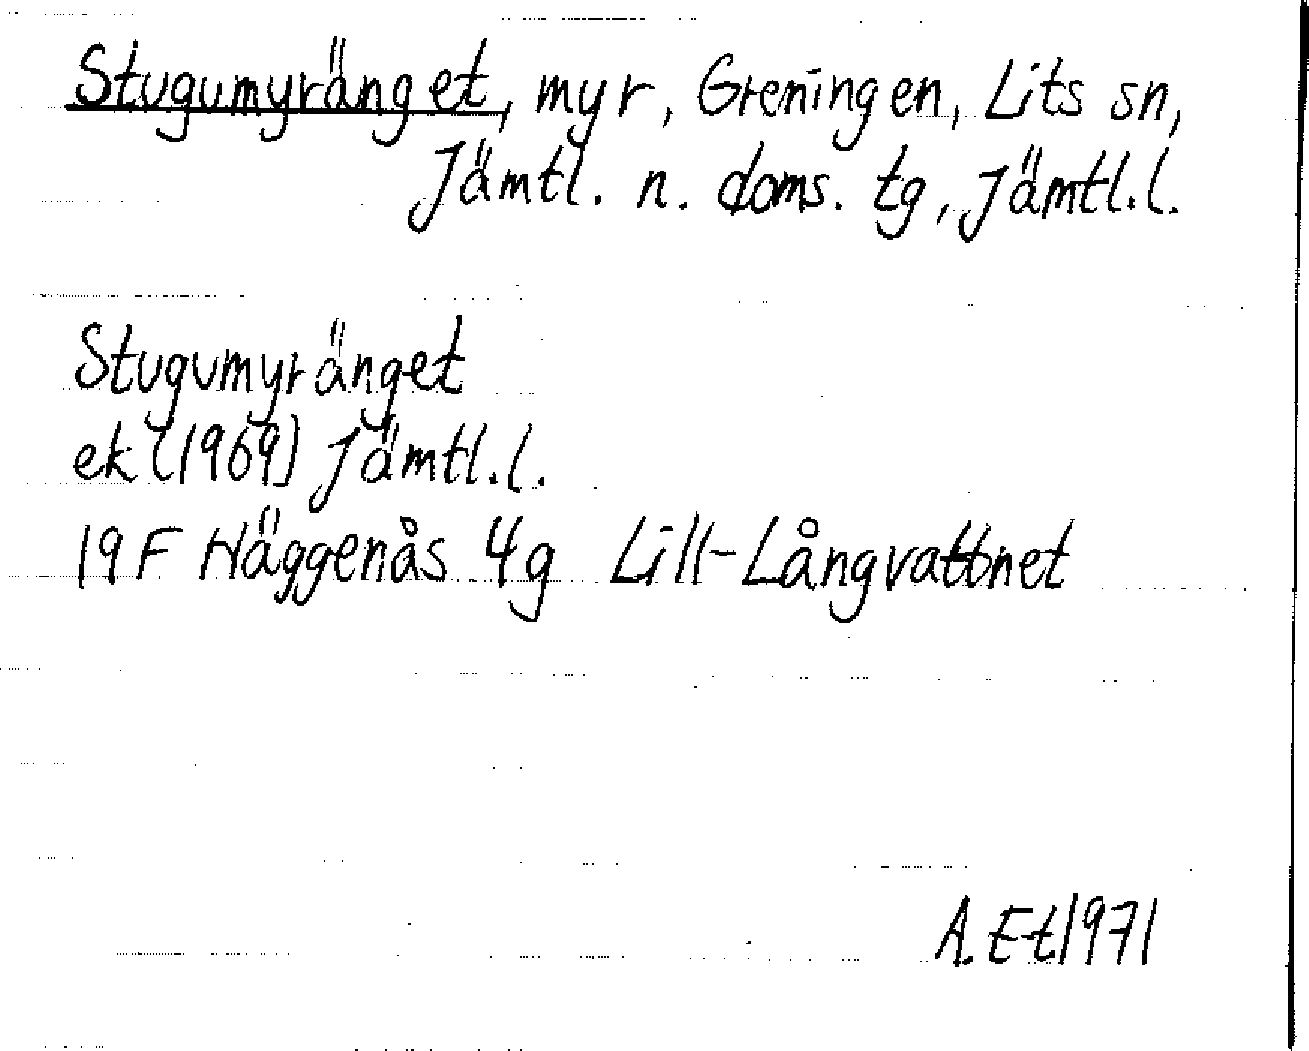 Stugumyränget, myr, Greningen, Lits sn,
Jämtl. n. doms. tg, Jämtl.l.
Stugumyränget
ek (1969) Jämtl.l.
19F Häggenås 4g Lill-Långvattnet
A. Et 1971